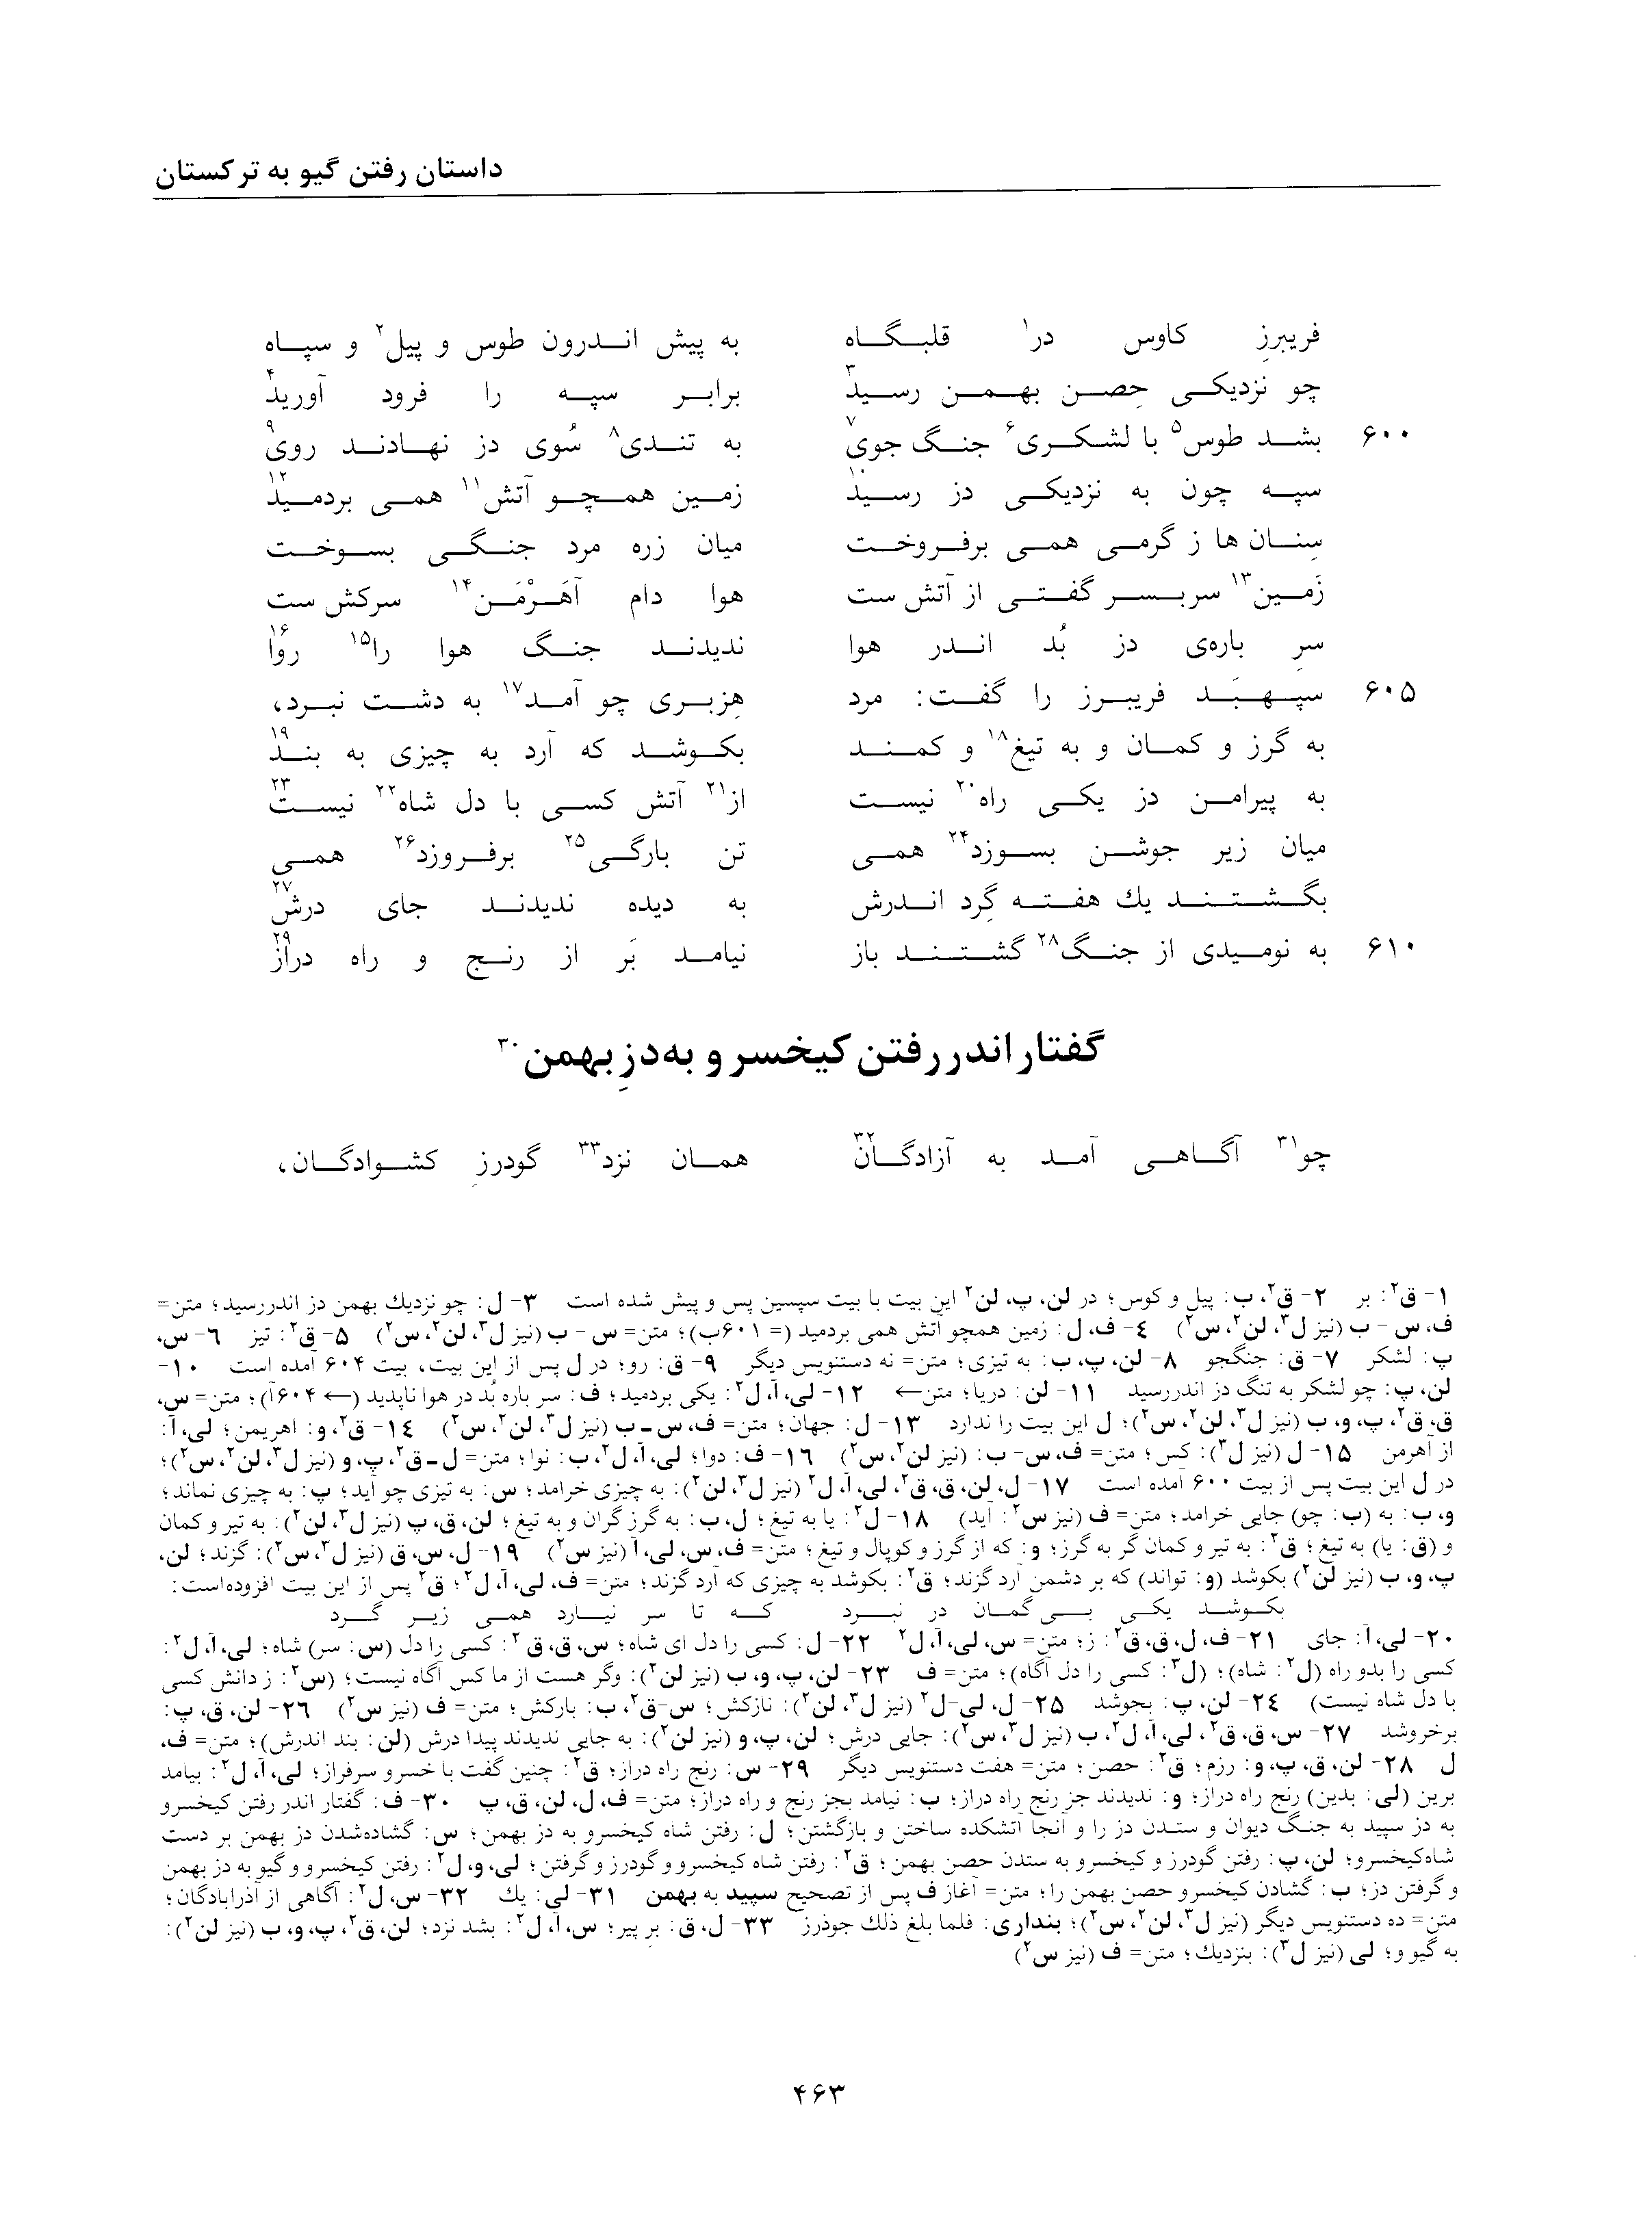 داستان رفتن گیو به ترکستان
فریبرزِ کاوس در۱ قلبگاه به پیش اندرون طوس و پیل۲ و سپاه
چو نزدیکی حِصن بهمن رسید۳ برابر سپه را فرود آورید۴
۶۰۰ بشد طوس۵ با لشکری۶ جنگ جوی۷ به تندی۸ سُوی دز نهادند روی۹
سپه چون به نزدیکی دز رسید۱۰ زمین همچو آتش۱۱ همی بردمید۱۲
سِنان ها ز گرمی همی برفروخت میان زره مرد جنگی بسوخت
زَمین۱۳ سربسر گفتی از آتش ست هوا دام آهَرْمَن۱۴ سرکش ست
سرِ باره‌ی دز بُد اندر هوا ندیدند جنگ هوا را۱۵ روا۱۶
۶۰۵ سپهبَد فریبرز را گفت: مرد هِزبری چو آمد۱۷ به دشت نبرد،
به گرز و کمان و به تیغ۱۸ و کمند بکوشد که آرد به چیزی به بند۱۹
به پیرامن دز یکی راه۲۰ نیست از۲۱ آتش کسی با دل شاه۲۲ نیست۲۳
میان زیر جوشن بسوزد۲۴ همی تن بارگی۲۵ برفروزد۲۶ همی
بگشتند یك هفته گِرد اندرش به دیده ندیدند جای درش۲۷
۶۱۰ به نومیدی از جنگ۲۸ گشتند باز نیامد بَر از رنج و راه دراز۲۹
گفتار اندر رفتن کیخسرو به دزِ بهمن۳۰
چو۳۱ آگاهی آمد به آزادگان۳۲ همان نزد۳۳ گودرزِ کشوادگان،
۱- ق۲: بر ۲- ق۲، ب: پیل و کوس؛ در لن، پ، لن۲ این بیت با بیت سپسین پس و پیش شده است ۳- ل: چو نزدیك بهمن دز اندررسید؛ متن=
ف، س - ب (نیز ل۳، لن۲، س۲) ٤- ف، ل: زمین همچو آتش همی بردمید (= ۶۰۱ب)؛ متن= س - ب (نیز ل۳، لن۲، س۲) ۵- ق۲: تیز ٦- س،
پ: لشکر ۷- ق: جنگجو ۸- لن، پ، ب: به تیزی؛ متن= نه دستنویس دیگر ۹- ق: رو؛ در ل پس از این بیت، بیت ۶۰۴ آمده است ۱۰-
لن، پ: چو لشکر به تنگ دز اندررسید ۱۱- لن: دریا؛ متن← ۱۲- لی، آ، ل۲: یکی بردمید؛ ف: سر باره بُد در هوا ناپدید (← ۶۰۴آ)؛ متن= س،
ق، ق۲، پ، و، ب (نیز ل۳، لن۲، س۲)؛ ل این بیت را ندارد ۱۳- ل: جهان؛ متن= ف، س-ب (نیز ل۳، لن۲، س۲) ۱٤- ق۲، و: اهریمن؛ لی، آ:
از آهرمن ۱۵- ل (نیز ل۳): کس؛ متن= ف، س- ب: (نیز لن۲، س۲) ۱٦- ف: دوا؛ لی، آ، ل۲، ب: نوا؛ متن= ل-ق۲، پ، و (نیز ل۳، لن۲، س۲)؛
در ل این بیت پس از بیت ۶۰۰ آمده است ۱۷- ل، لن، ق، ق۲، لی، آ، ل۲ (نیز ل۳، لن۲): به چیزی خرامد؛ س: به تیزی چو آید؛ پ: به چیزی نماند؛
و، ب: به (ب: چو) جایی خرامد؛ متن= ف (نیز س۲: آید) ۱۸- ل۲: یا به تیغ؛ ل، ب: به گرز گران و به تیغ؛ لن، ق، پ (نیز ل۳، لن۲): به تیر و کمان
و (ق: یا) به تیغ؛ ق۲: به تیر و کمان گر به گرز؛ و: که از گرز و کوپال و تیغ؛ متن= ف، س، لی، آ (نیز س۲) ۱۹- ل، س، ق (نیز ل۳، س۲): گزند؛ لن،
پ، و، ب (نیز لن۲) بکوشد (و: تواند) که بر دشمن آرد گزند؛ ق۲: بکوشد به چیزی که آرد گزند؛ متن= ف، لی، آ، ل۲؛ ق۲ پس از این بیت افزوده‌است:
بکوشد یکی بی گمان در نبرد که تا سر نیارد همی زیر گرد
۲۰- لی، آ: جای ۲۱- ف، ل، ق، ق۲: ز؛ متن= س، لی، آ، ل۲ ۲۲- ل: کسی را دل ای شاه؛ س، ق، ق۲: کسی را دل (س: سر) شاه؛ لی، آ، ل۲:
کسی را بدو راه (ل۲: شاه)؛ (ل۳: کسی را دل آگاه)؛ متن= ف ۲۳- لن، پ، و، ب (نیز لن۲): وگر هست از ما کس آگاه نیست؛ (س۲: ز دانش کسی
با دل شاه نیست) ۲٤- لن، پ: بجوشد ۲۵- ل، لی-ل۲ (نیز ل۳، لن۲): نازکش؛ س-ق۲، ب: بارکش؛ متن= ف (نیز س۲) ۲٦- لن، ق، پ:
برخروشد ۲۷- س، ق، ق۲، لی، آ، ل۲، ب (نیز ل۳، س۲): جایی درش؛ لن، پ، و (نیز لن۲): به جایی ندیدند پیدا درش (لن: بند اندرش)؛ متن= ف،
ل ۲۸- لن، ق، پ، و: رزم؛ ق۲: حصن؛ متن= هفت دستنویس دیگر ۲۹- س: رنج راه دراز؛ ق۲: چنین گفت با خسرو سرفراز؛ لی، آ، ل۲: بیامد
برین (لی: بدین) رنج راه دراز؛ و: ندیدند جز رنج راه دراز؛ ب: نیامد بجز رنج و راه دراز؛ متن= ف، ل، لن، ق، پ ۳۰- ف: گفتار اندر رفتن کیخسرو
به دز سپید به جنگ دیوان و ستدن دز را و آنجا آتشکده ساختن و بازگشتن؛ ل: رفتن شاه کیخسرو به دز بهمن؛ س: گشاده‌شدن دز بهمن بر دست
شاه‌کیخسرو؛ لن، پ: رفتن گودرز و کیخسرو به ستدن حصن بهمن؛ ق۲: رفتن شاه کیخسرو و گودرز و گرفتن؛ لی، و، ل۲: رفتن کیخسرو و گیو به دز بهمن
و گرفتن دز؛ ب: گشادن کیخسرو حصن بهمن را؛ متن= آغاز ف پس از تصحیح سپید به بهمن ۳۱- لی: یك ۳۲- س، ل۲: آگاهی از آذرابادگان؛
متن= ده دستنویس دیگر (نیز ل۳، لن۲، س۲)؛ بنداری: فلما بلغ ذلك جوذرز ۳۳- ل، ق: برِ پیر؛ س، آ، ل۲: بشد نزد؛ لن، ق۲، پ، و، ب (نیز لن۲):
به گیو و؛ لی (نیز ل۳): بنزدیك؛ متن= ف (نیز س۲)
۴۶۳